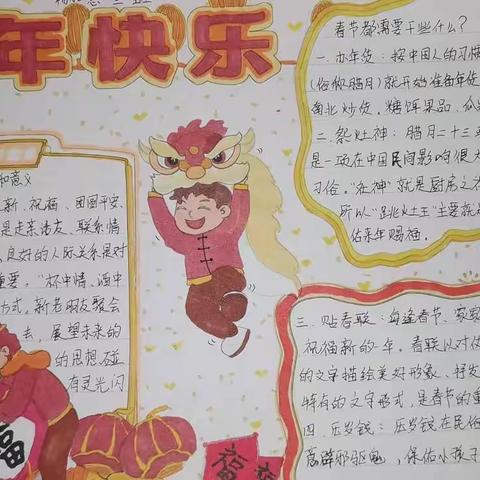 年快乐
和意义
新、祝福、团圆平安、
是走亲访友、联系情
良好的人际关系是对
重要。“杯中情、酒中
方式，新老朋友聚会
去，展望未来的
的思想碰
有灵光闪
春节都需要干些什么？
一、办年货：按中国人的习惯
（俗称腊月）就开始准备年货
南北炒货，糖饵果品、
二、祭灶神：腊月二十三
是一项在中国民间影响很大
习俗。“灶神”就是厨房之
所以“跳灶王”主要就是
佑来年赐福。
三、贴春联：每逢春节，家家
祝福新的一年。春联以对仗
的文字描绘美好形象、抒发
特有的文字形式，是春节的重
四、压岁钱：压岁钱在民俗
意辟邪驱鬼，保佑小孩子
福
福